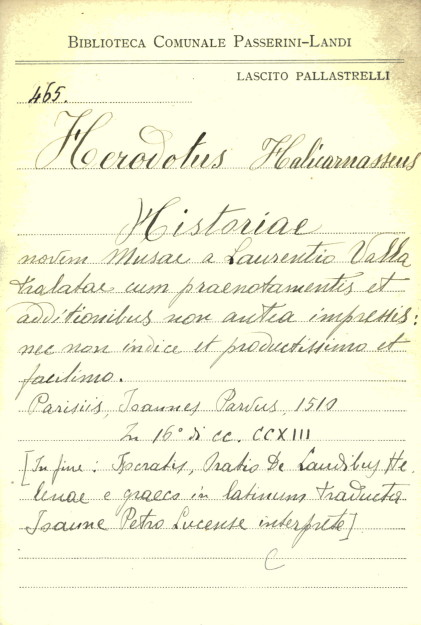 BIBLIOTECA COMUNALE PASSERINI-LANDI
LASCITO PALLASTRELLI
465.
Herodotus Halicarnasseus
Historiae
novem Musae a Laurentio Valla
tralatae cum praenotamentis et
additionibus non antea impressis:
nec non indice et productissimo et
facilimo.
Parisiis, Joannes Parvus, 1510
In 16° di cc. CCXIII
[In fine: Isocratis, Oratio De Laudibus He-
lenae e graeco in latinum traducta
Joanne Petro Lucense interprete]